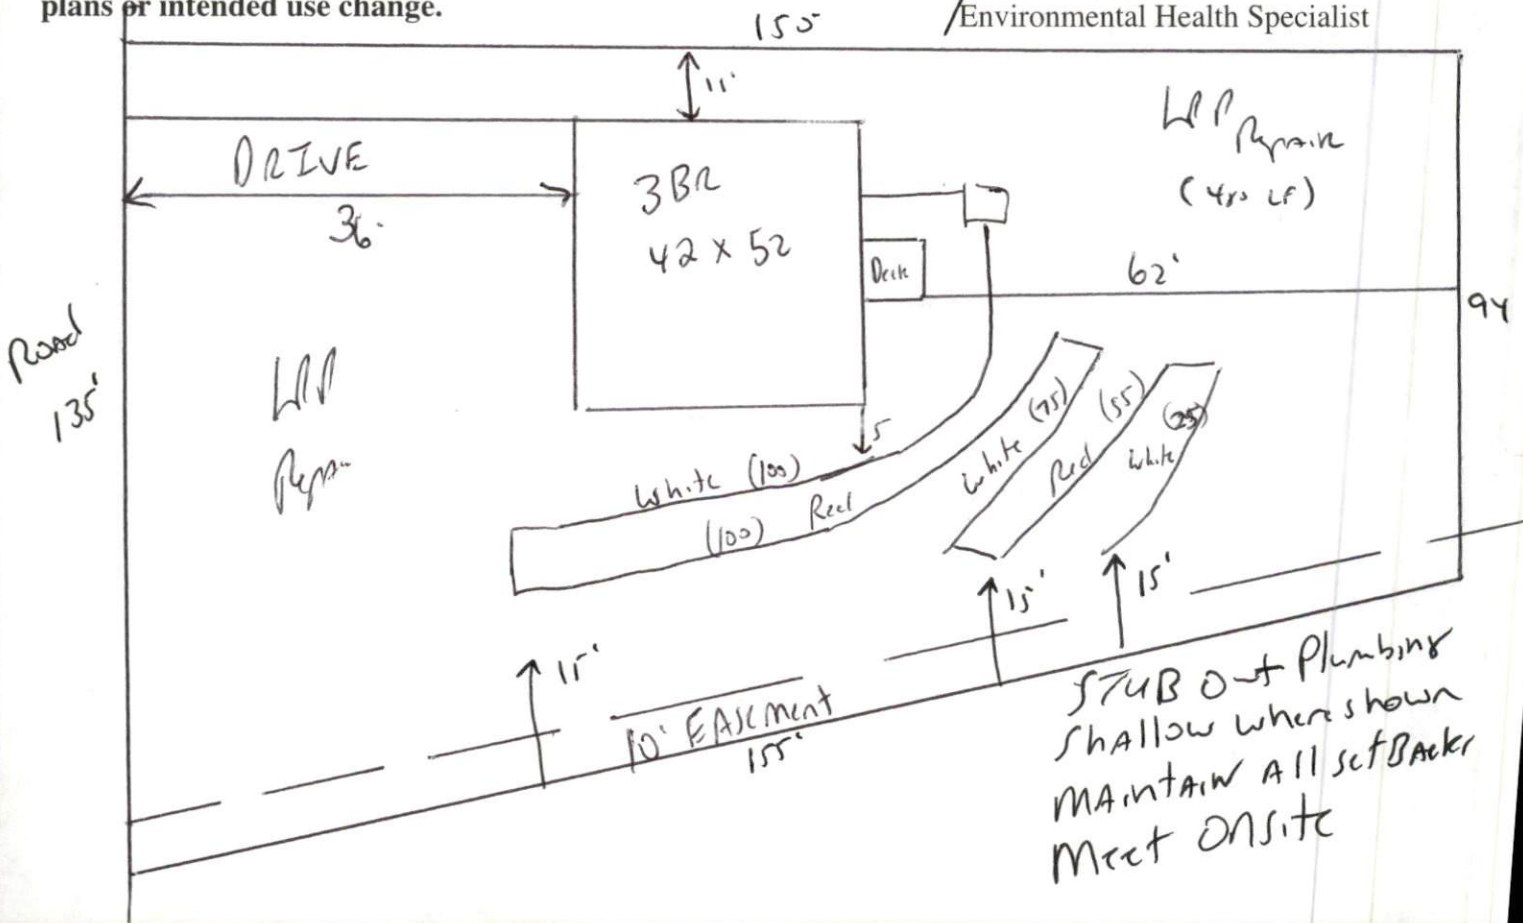 plans or intended use change.
Environmental Health Specialist
150
11'
DRIVE
36
3BR
42 x 52
Deck
LPP
Repair
(450 LF)
62'
94
ROAD
135'
LPP
Repair
5
White (100)
(100) Red
White (75)
Red (55)
White (25)
15'
15'
15'
10' EASEMENT
155'
STUB OUT Plumbing
Shallow where shown
MAINTAIN All setBAcks
Meet ONSite